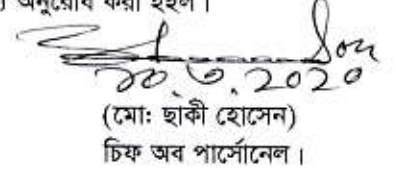 অনুরোধ করা হইল।
৩০.৩.2020
(মোঃ ছাকী হোসেন)
চিফ অব পার্সোনেল।